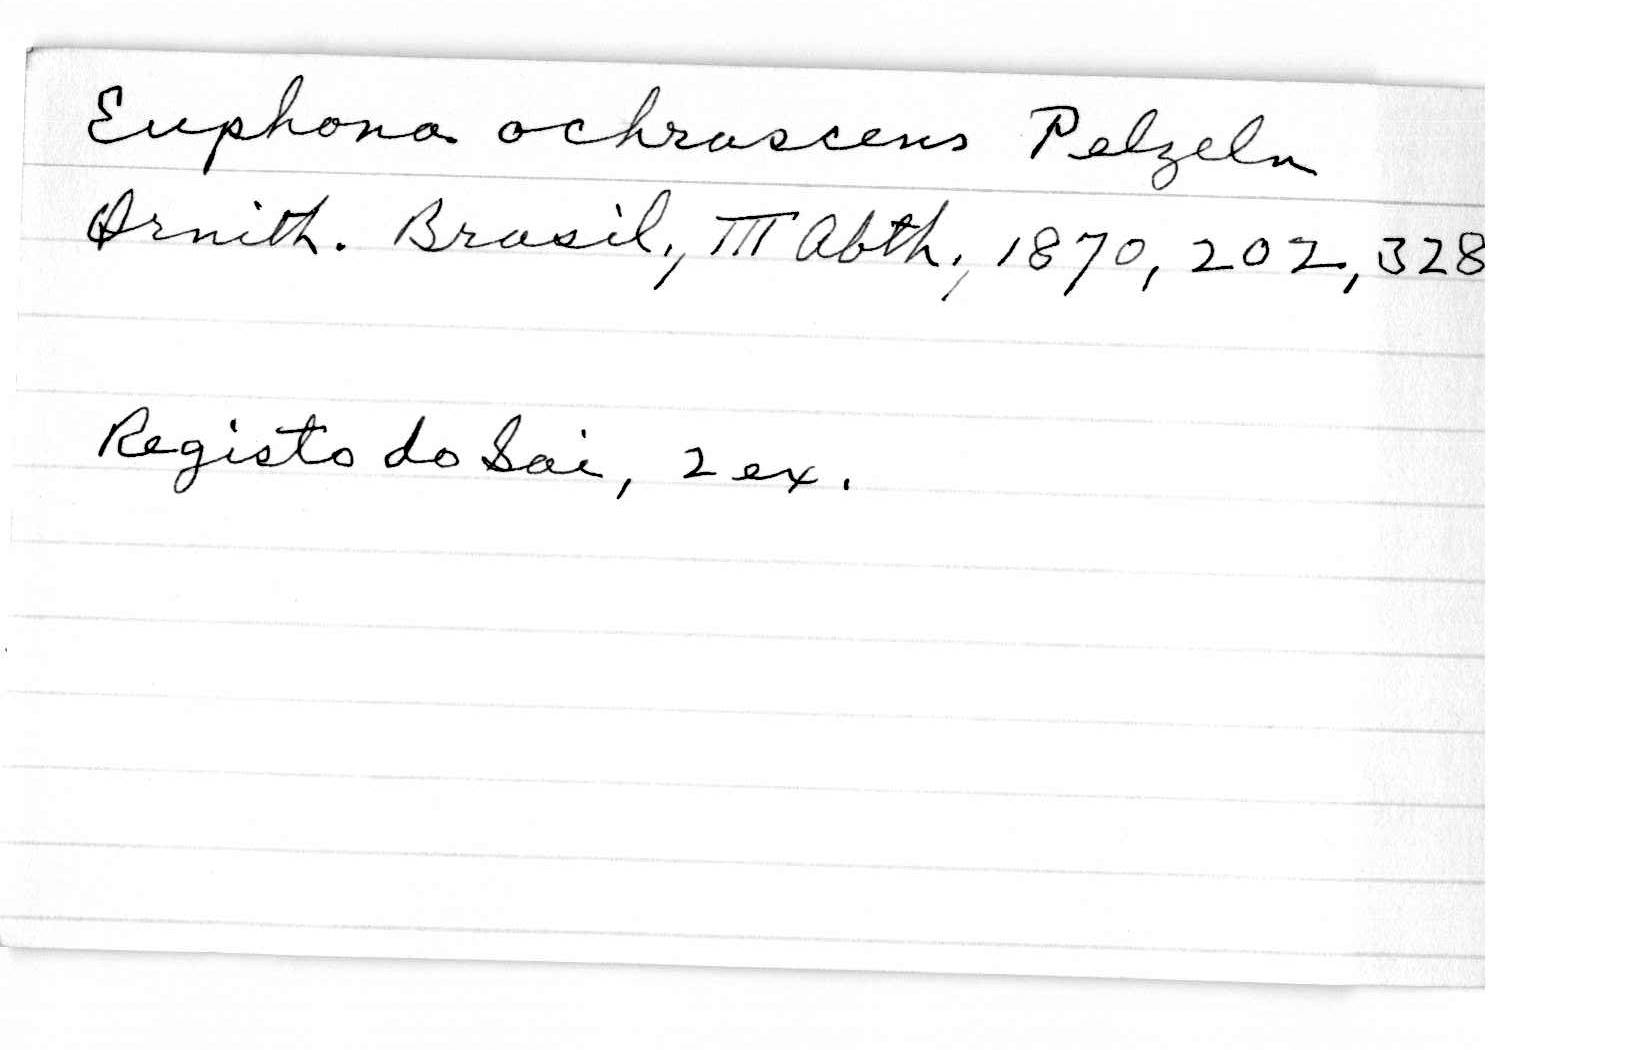 Euphona ochrascens Pelzeln
Ornith. Brasil., III Abth., 1870, 202, 328
Registo do Sai, 2 ex.